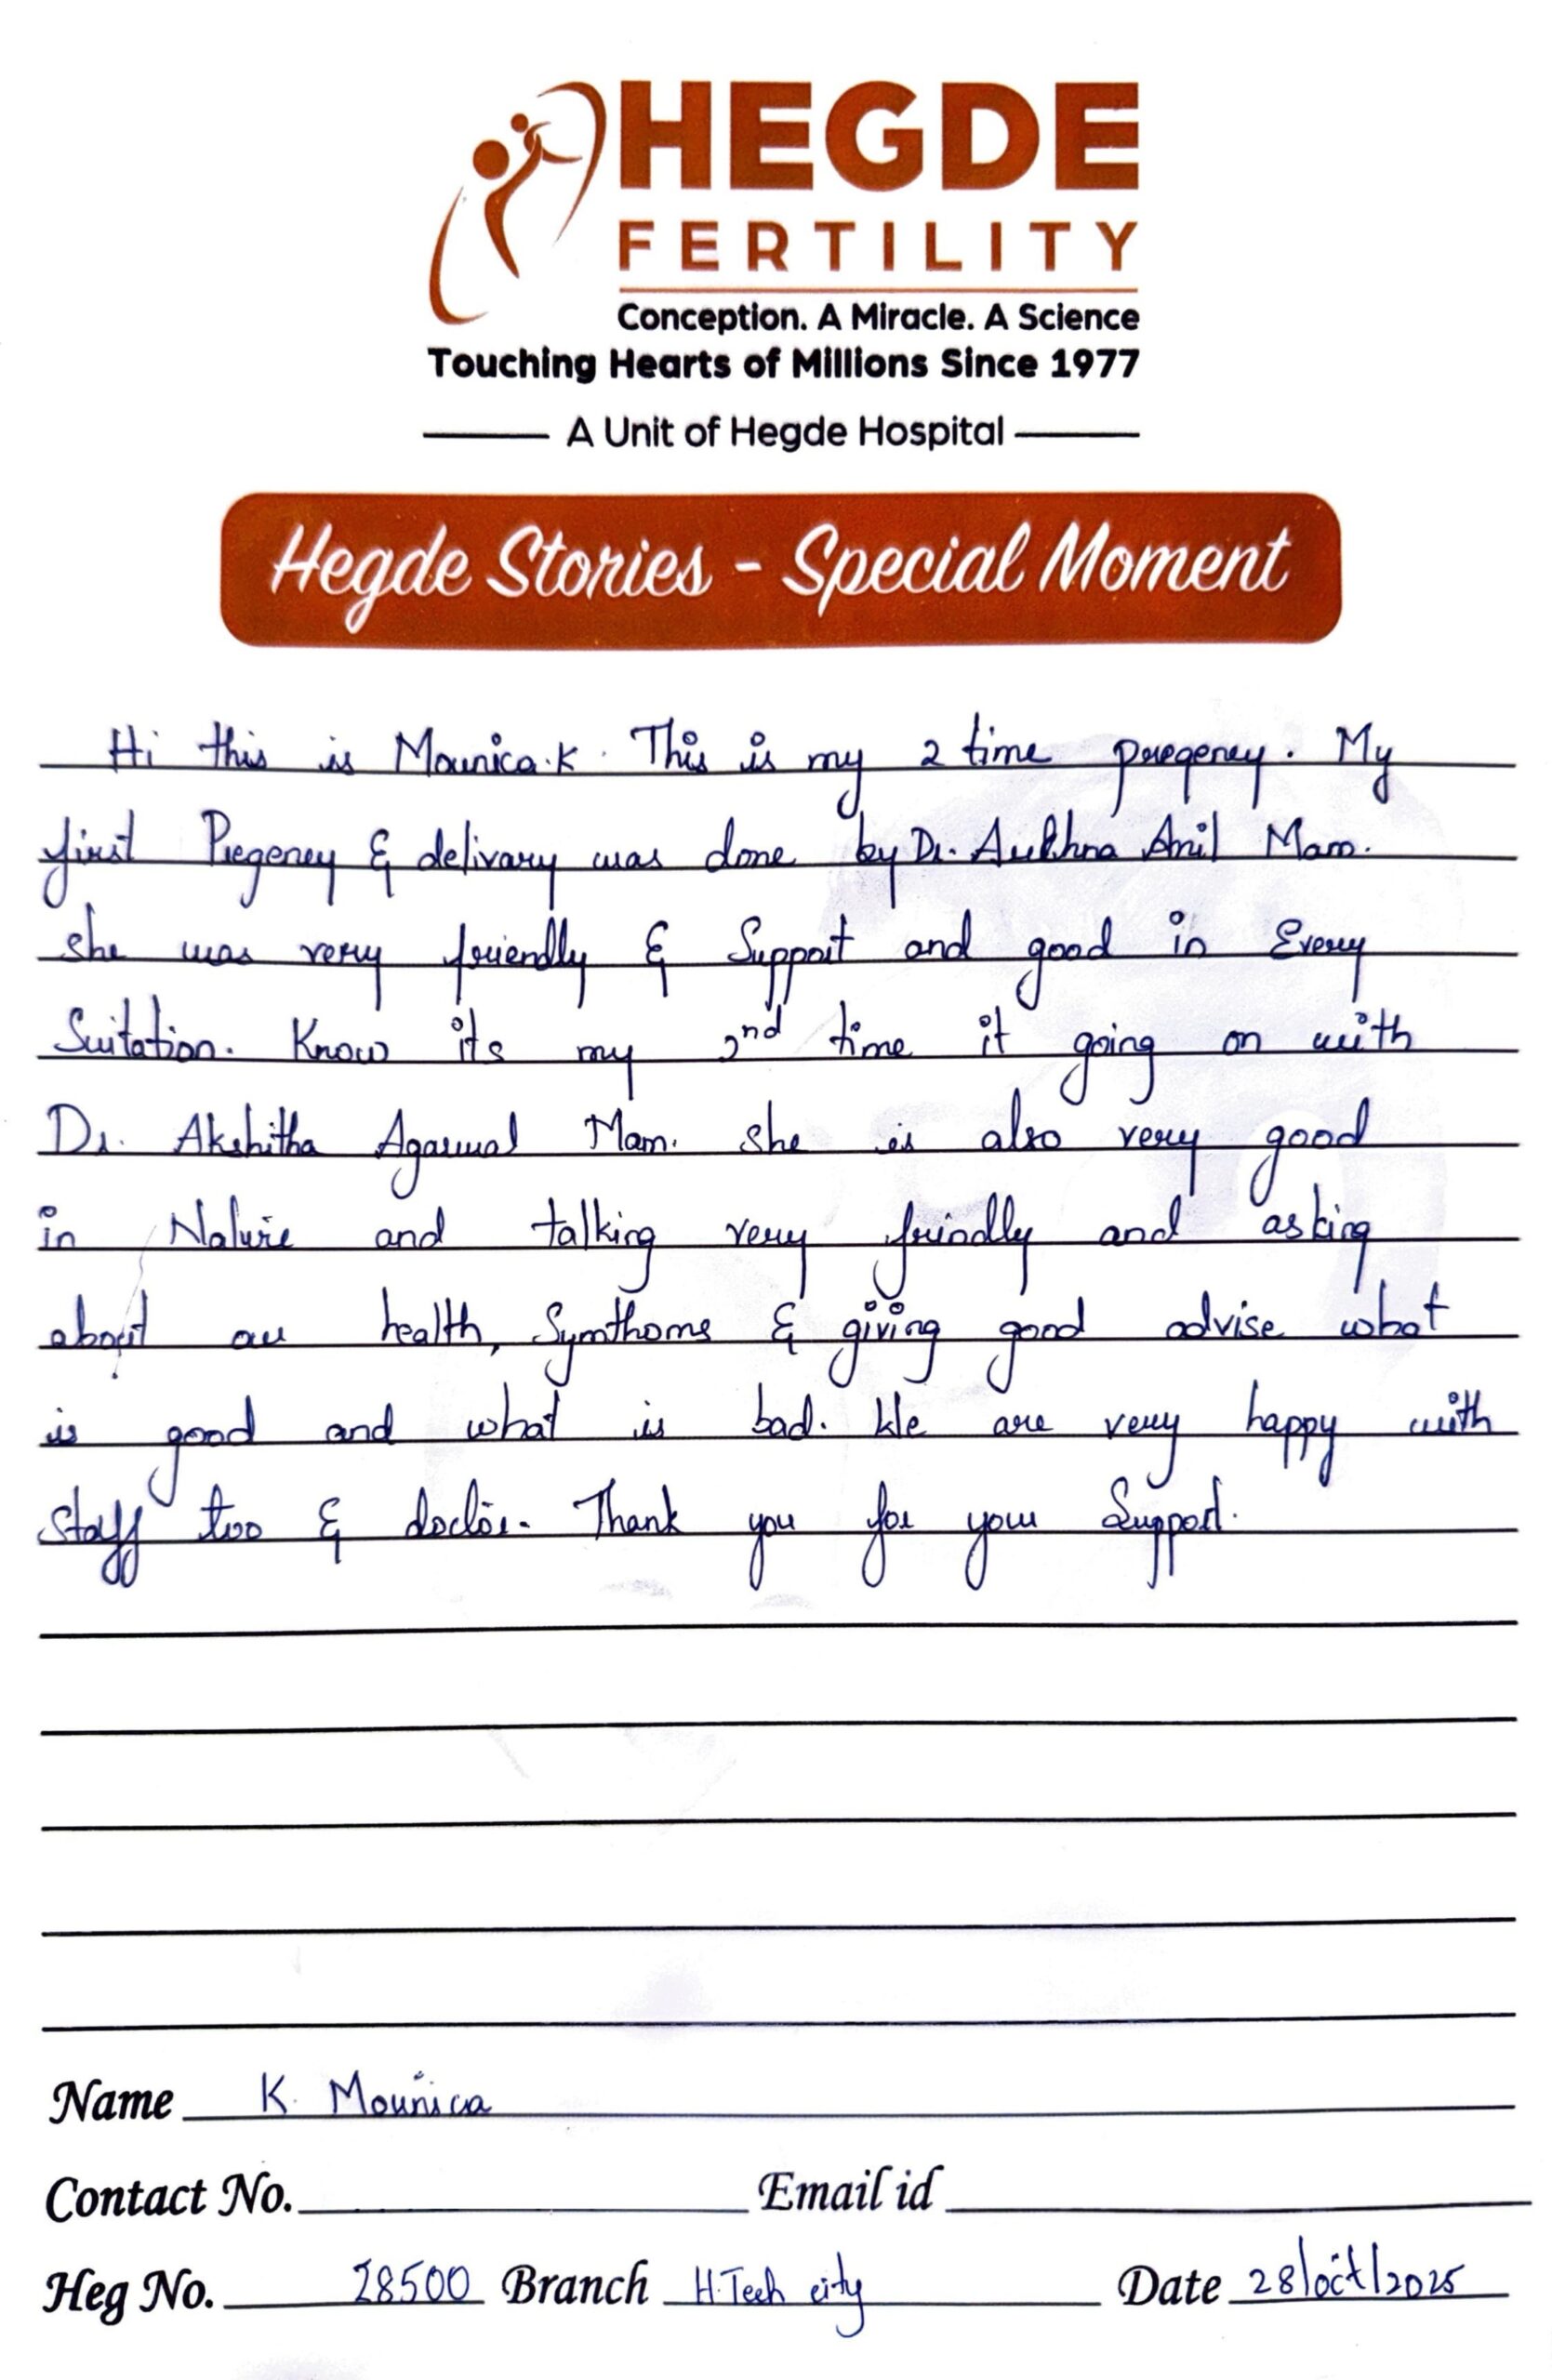 HEGDE
FERTILITY
Conception. A Miracle. A Science
Touching Hearts of Millions Since 1977
A Unit of Hegde Hospital
Hegde Stories - Special Moment
Hi this is Mounica.K. This is my 2 time pregency. My
first Pregency & delivary was done by Dr. Anil Mam.
she was very friendly & Support and good in Every
Suitation. Know its my 2nd time it going on with
Dr. Akshitha Agarwal Mam. she is also very good
in Nature and talking very frindly and asking
about our health, Symthoms & giving good advise what
is good and what is bad. We are very happy with
staff too & doctor. Thank you for your Support.
Name K. Mounica
Contact No. Email id
Heg No. 28500 Branch H.Tech city Date 28/oct/2025